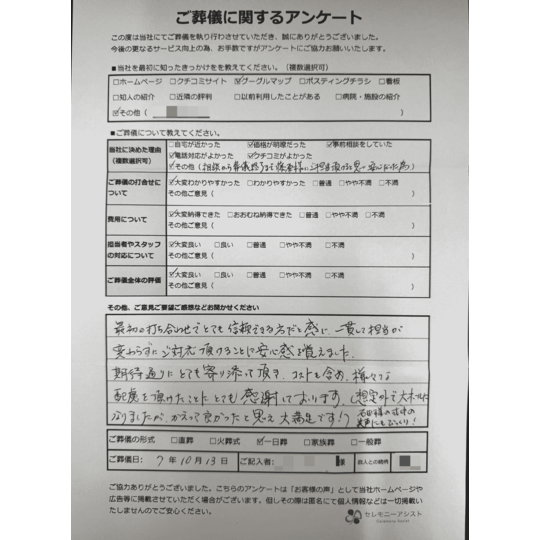 ご葬儀に関するアンケート
この度は当社にてご葬儀を執り行わさせていただき、誠にありがとうございました。
今後の更なるサービス向上の為、お手数ですがアンケートにご協力お願いいたします。
■当社を最初に知ったきっかけをを教えてください。（複数選択可）
□ホームページ □クチコミサイト ☑グーグルマップ □ポスティングチラシ □看板
□知人の紹介 □近隣の評判 □以前利用したことがある □病院・施設の紹介
☑その他（ ）
■ご葬儀について教えてください。
当社に決めた理由（複数選択可） □自宅が近かった ☑価格が明瞭だった ☑事前相談をしていた
☑電話対応がよかった ☑クチコミがよかった
☑その他（相談から葬儀終了まで 担当頂けると思い安心した為）
ご葬儀の打合せについて ☑大変わかりやすかった □わかりやすかった □普通 □やや不満 □不満
その他ご意見（ ）
費用について ☑大変納得できた □おおむね納得できた □普通 □やや不満 □不満
その他ご意見（ ）
担当者やスタッフの対応について ☑大変良い □良い □普通 □やや不満 □不満
その他ご意見（ ）
ご葬儀全体の評価 ☑大変良い □良い □普通 □やや不満 □不満
その他ご意見（ ）
その他、ご意見ご要望ご感想などお聞かせください
最初の打ち合わせでとても信頼できる方だと感じ、一貫して担当が
変わらずにご対応頂けることに安心感を覚えました。
期待通りにとても寄り添って頂き、コストも含め、様々な
配慮を頂けたことにとても感謝しております。想定外で大木
なりましたが、かえって良かったと思え大満足です！
石田様の
にもびっくり！
ご葬儀の形式 □直葬 □火葬式 ☑一日葬 □家族葬 □一般葬
ご葬儀日： 7年10月13日 ご記入者： 様 故人との続柄
ご協力ありがとうございました。こちらのアンケートは「お客様の声」として当社ホームページや
広告等に掲載させていただく場合がございます。但しその際は匿名にて個人情報などは一切掲載い
たしませんのでご安心ください。
セレモニーアシスト
Ceremony Assist